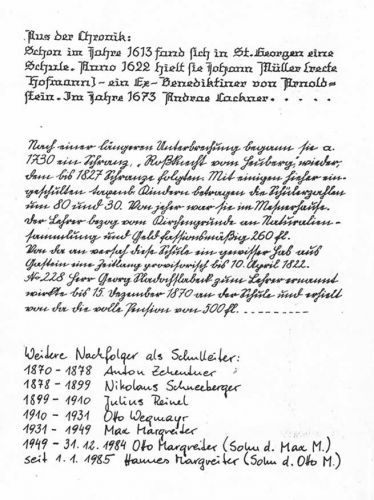 Aus der Chronik:
Schon im Jahre 1613 fand sich in St. Georgen eine
Schule. Anno 1622 hielt sie Johann Müller (recte
Hofmann) - ein Ex-Benediktiner von Arnold=
stein. Im Jahre 1673 Andrae Lackner. . . . . .
Nach einer längeren Unterbrechung begann sie a.
1730 ein Schranz, "Roßknecht vom Heuberg", wieder,
dem bis 1827 Schranze folgten. Mit einigen hieher ein-
geschulten Kindern betragen die Schülerzahlen
um 80 und 30. Von jeher war sie im Mesnerhause.
Der Lehrer bezog vom Kirchengrunde an Naturalien-
sammlung und Geld fassionsmäßig 260 fl.
Von da an versah diese Schule ein gewisser aus
Gastein eine Zeitlang provisorisch bis 10. April 1822.
No. 228 Herr Georg zum Lehrer ernannt
wirkte bis 15. Dezember 1870 an der Schule und erhielt
von da die volle Pension von 500 fl. . . . . . . . . .
Weitere Nachfolger als Schulleiter:
1870 - 1878 Anton Zehentner
1878 - 1899 Nikolaus Schneeberger
1899 - 1910 Julius Reinel
1910 - 1931 Otto Wegmayr
1931 - 1949 Max Margreiter
1949 - 31. 12. 1984 Otto Margreiter (Sohn d. Max M.)
seit 1. 1. 1985 Hannes Margreiter (Sohn d. Otto M.)